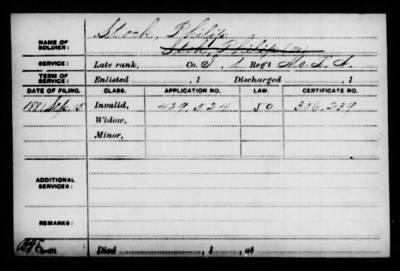 NAME OF SOLDIER: Stock, Philip
Stok, Philip
SERVICE: Late rank, Co. I, 1 Reg't Mo. L. A.
TERM OF SERVICE: Enlisted , 1 Discharged , 1
DATE OF FILING. CLASS. APPLICATION NO. LAW. CERTIFICATE NO.
1881 Sep. 15 Invalid, 429,524 306,239
Widow,
Minor,
ADDITIONAL SERVICES:
REMARKS:
Died , 1 , at